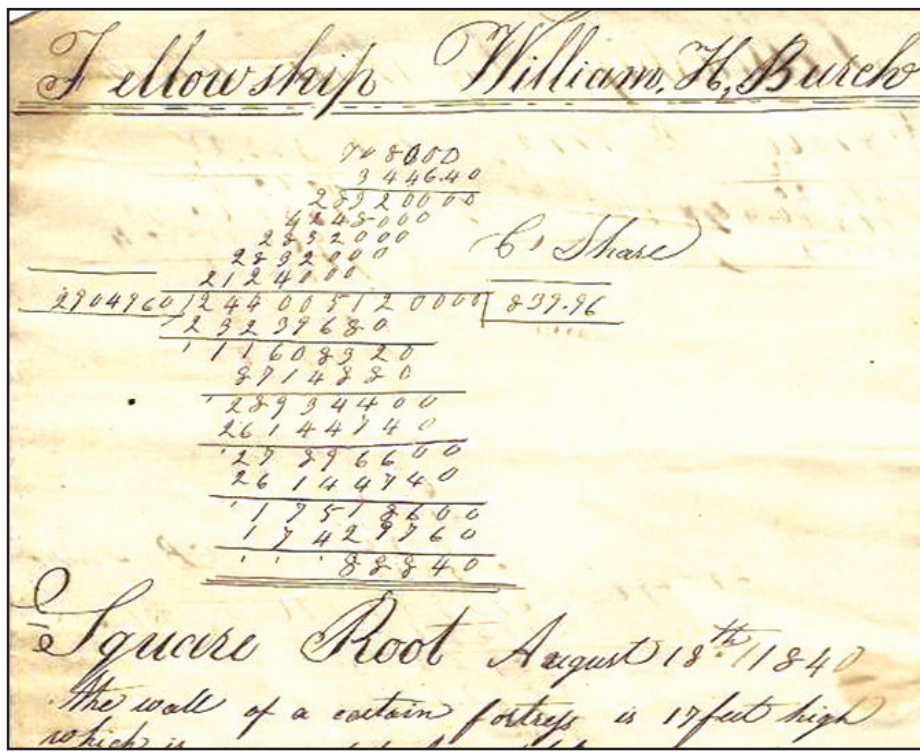 Fellowship William, H, Burch
708000
3446.40
28320000
4248000
2832000
2832000
2124000
C's Share
2904960) 2440051200000 | 839.96
23239680
11608320
8714880
28934400
26144740
27896600
26144740
17518600
17429760
88840
Square Root August 18th 1840
The wall of a certain fortress is 17 feet high
which is